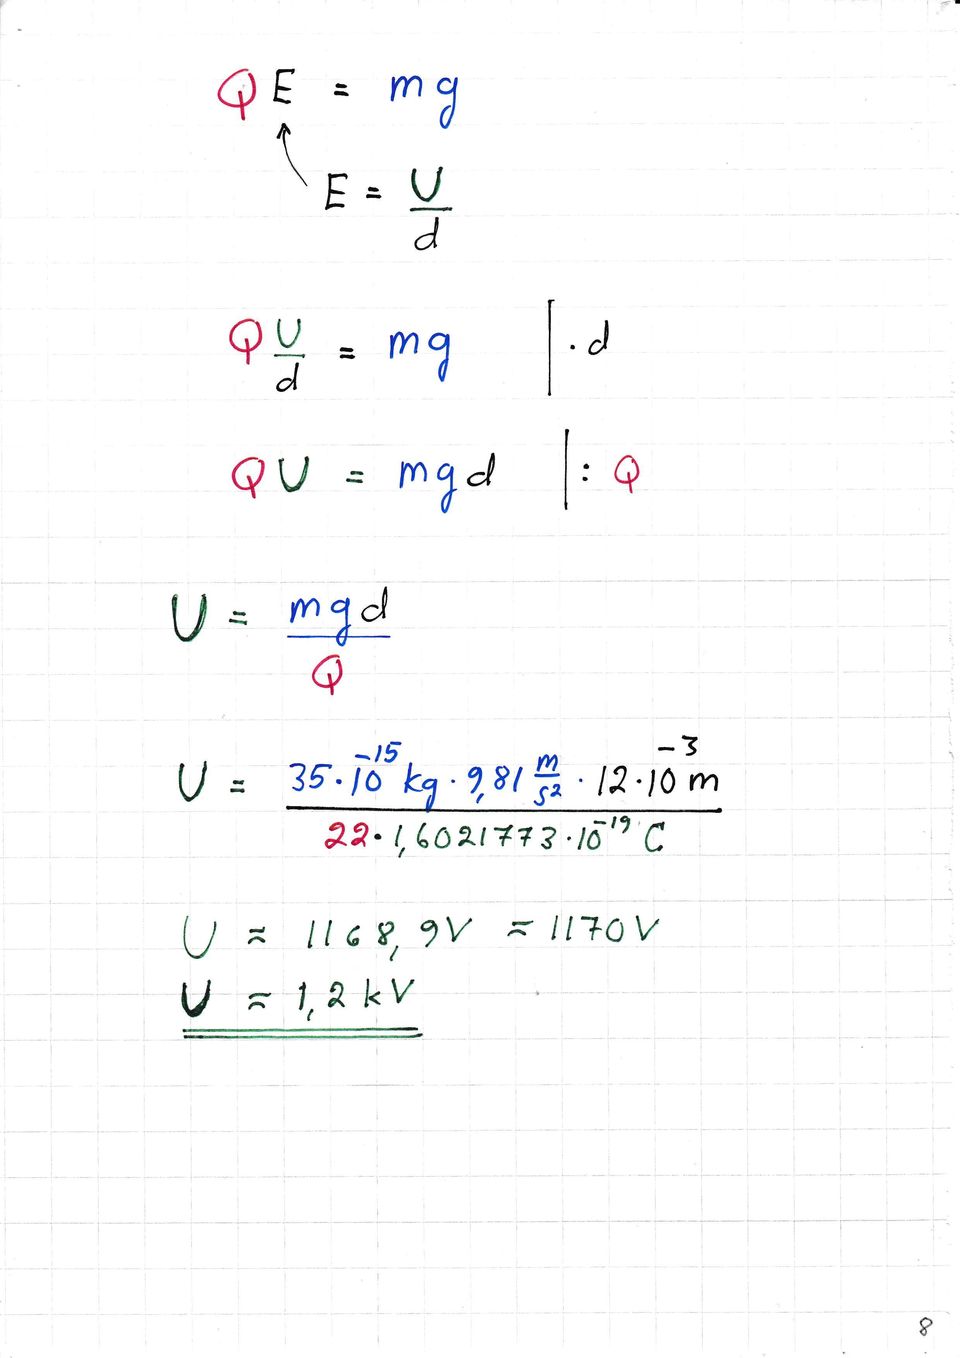 QE = mg
E = U/d
Q U/d = mg | · d
QU = mgd | : Q
U = mgd/Q
U = 35·10⁻¹⁵ kg · 9,81 m/s² · 12·10⁻³ m / 22·1,6021773·10⁻¹⁹ C
U ≈ 1168,9V ≈ 1170V
U ≈ 1,2 kV
8